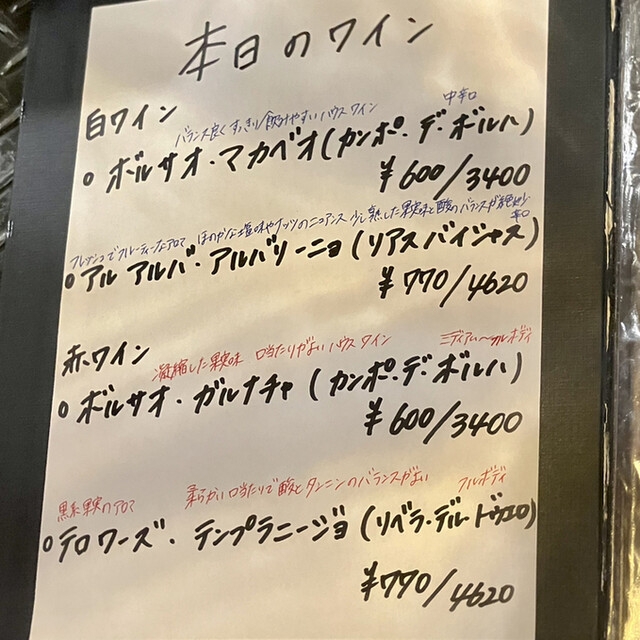 本日のワイン
白ワイン
バランス良くすっきり飲みやすいハウスワイン 中辛口
ボルサオ・マカベオ(カンポ・デ・ボルハ)
¥600/3400
フレッシュでフルーティーなアロマ ほのかな塩味やナッツのニュアンス 少し熟した果実味と酸のバランスが絶妙 辛口
アル アルバ・アルバリーニョ(リアスバイシャス)
¥770/4620
赤ワイン
凝縮した果実味 口当たりがよいハウスワイン ミディアム〜フルボディ
ボルサオ・ガルナチャ(カンポ・デ・ボルハ)
¥600/3400
黒系果実のアロマ 柔らかい口当たりで酸とタンニンのバランスがよい フルボディ
テロワーズ・テンプラニージョ(リベラ・デル・ドゥエロ)
¥770/4620